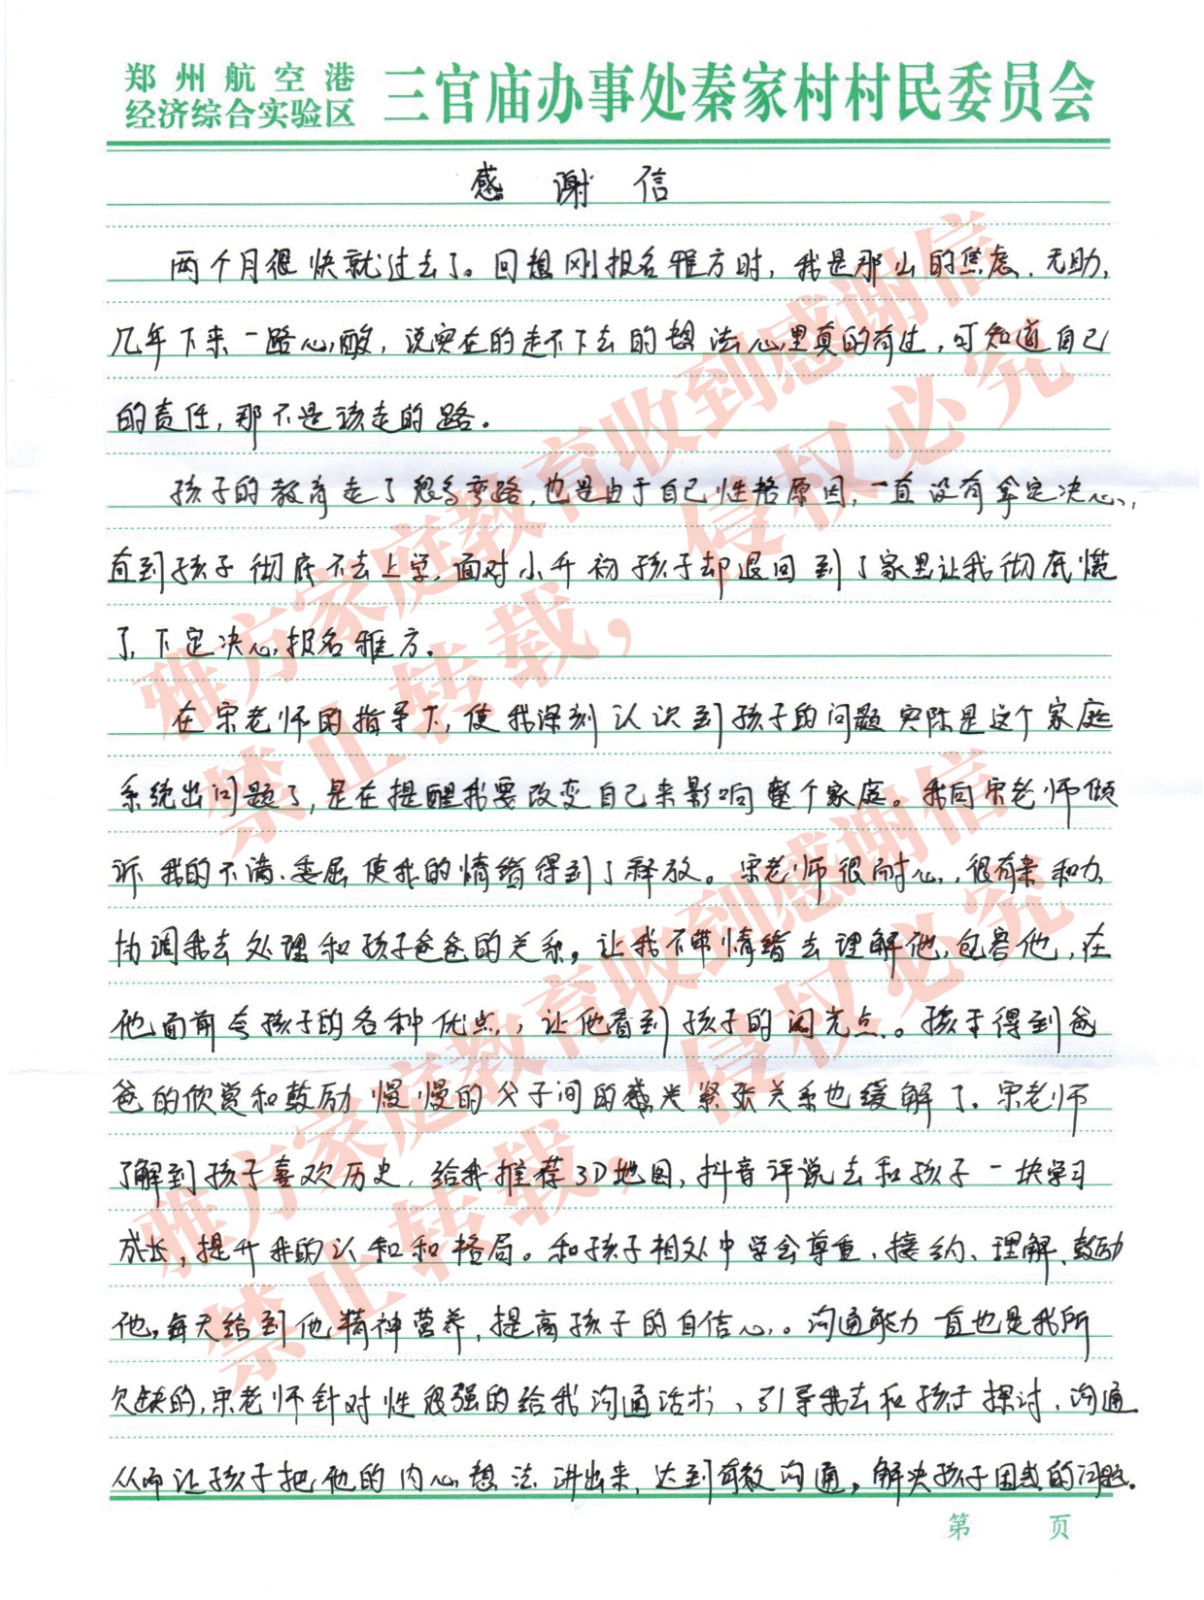 郑州航空港
经济综合实验区
三官庙办事处秦家村村民委员会
感谢信
两个月很快就过去了。回想刚报名雅方时，我是那么的焦虑、无助，
几年下来一路心酸，说实在的走不下去的想法心里真的有过，可知道自己
的责任，那不是该走的路。
孩子的教育走了很多弯路，也是由于自己性格原因，一直没有拿定决心，
直到孩子彻底不去上学，面对小升初孩子却退回到了家里让我彻底慌
了，下定决心报名雅方。
在宋老师的指导下，使我深刻认识到孩子的问题实际是这个家庭
系统出问题了，是在提醒我要改变自己来影响整个家庭。我向宋老师倾
诉我的不满、委屈使我的情绪得到了释放。宋老师很耐心，很有亲和力
协调我去处理和孩子爸爸的关系，让我不带情绪去理解他，包容他，在
他面前夸孩子的各种优点，让他看到孩子的闪光点。孩子得到爸
爸的欣赏和鼓励慢慢的父子间的紧张关系也缓解了。宋老师
了解到孩子喜欢历史，给我推荐3D地图，抖音评说去和孩子一块学习
成长，提升我的认和和格局。和孩子相处中学会尊重、接纳、理解、鼓励
他，每天给到他精神营养，提高孩子的自信心。沟通能力一直也是我所
欠缺的，宋老师针对性很强的给我沟通话术，引导我去和孩子探讨，沟通
从而让孩子把他的内心想法讲出来，达到有效沟通，解决孩子困惑的问题。
第 页
雅方家庭教育收到感谢信
禁止转载，侵权必究
雅方家庭教育收到感谢信
禁止转载，侵权必究